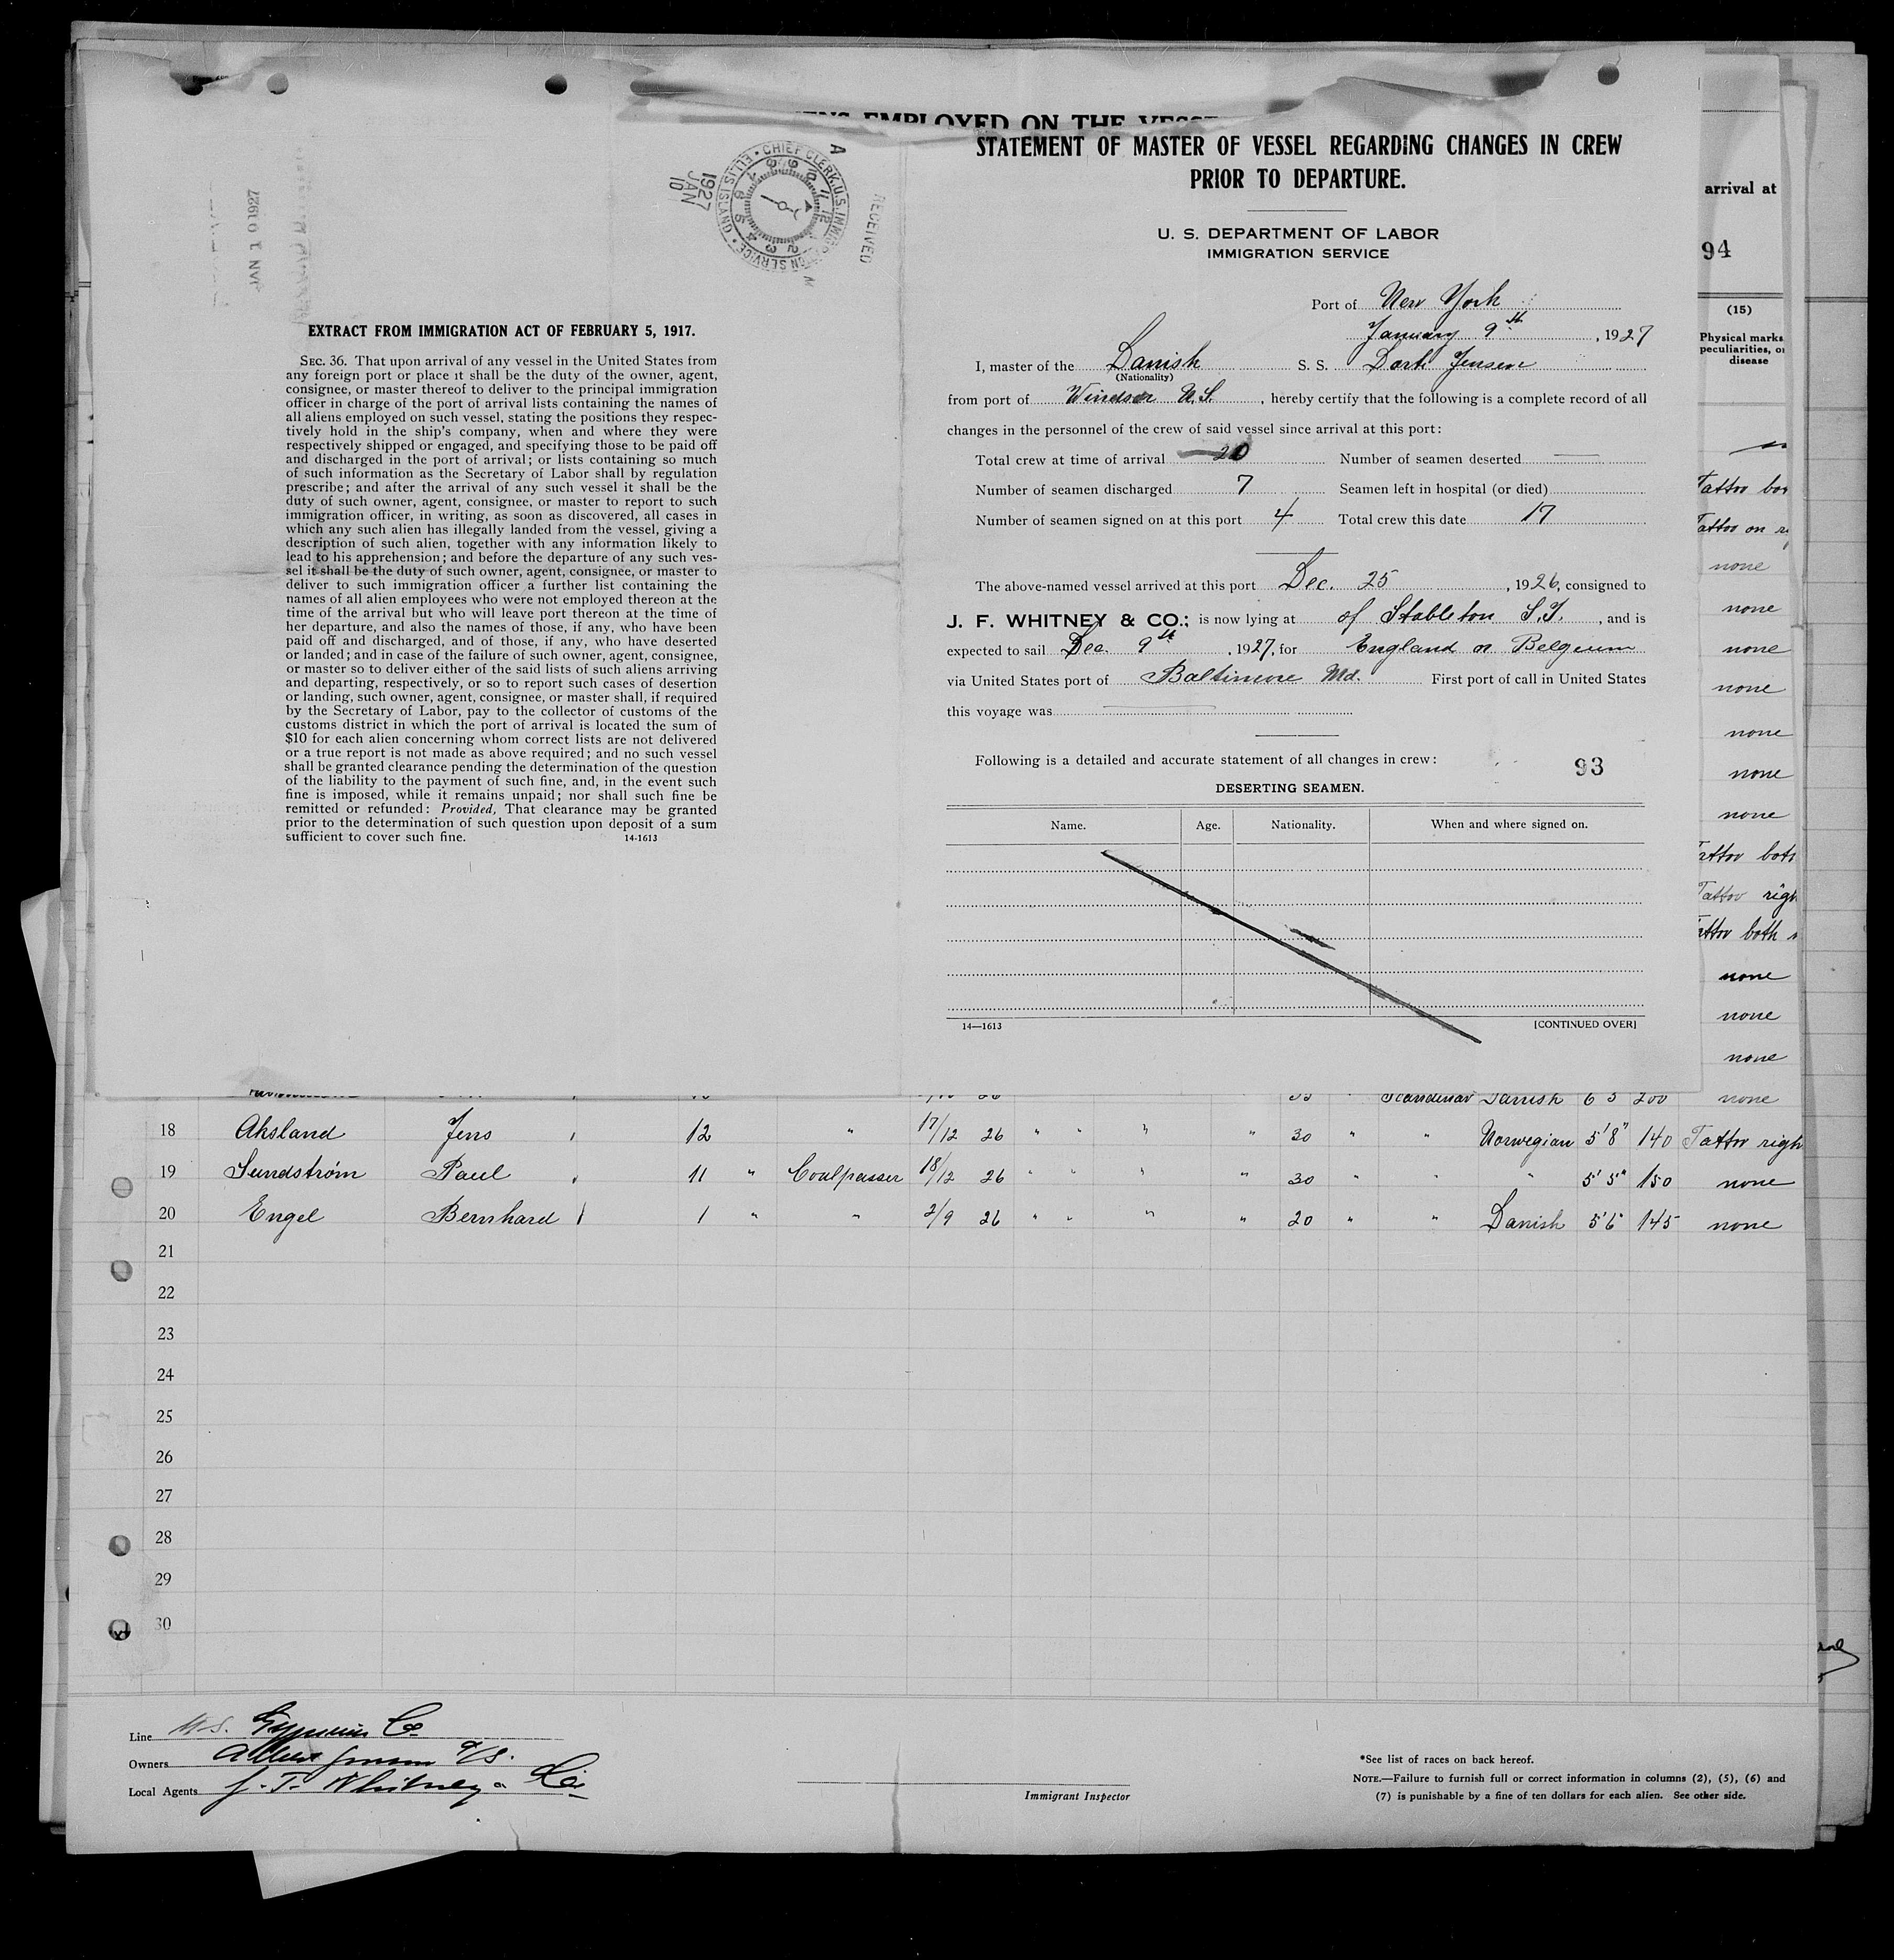 ENS EMPLOYED ON THE VESSE
JAN 10 1927
RECEIVED
CHIEF CLERK, U.S. IMMIGRATION SERVICE • ELLIS ISLAND •
1927 JAN 10
A M
EXTRACT FROM IMMIGRATION ACT OF FEBRUARY 5, 1917.
SEC. 36. That upon arrival of any vessel in the United States from
any foreign port or place it shall be the duty of the owner, agent,
consignee, or master thereof to deliver to the principal immigration
officer in charge of the port of arrival lists containing the names of
all aliens employed on such vessel, stating the positions they respec-
tively hold in the ship's company, when and where they were
respectively shipped or engaged, and specifying those to be paid off
and discharged in the port of arrival; or lists containing so much
of such information as the Secretary of Labor shall by regulation
prescribe; and after the arrival of any such vessel it shall be the
duty of such owner, agent, consignee, or master to report to such
immigration officer, in writing, as soon as discovered, all cases in
which any such alien has illegally landed from the vessel, giving a
description of such alien, together with any information likely to
lead to his apprehension; and before the departure of any such ves-
sel it shall be the duty of such owner, agent, consignee, or master to
deliver to such immigration officer a further list containing the
names of all alien employees who were not employed thereon at the
time of the arrival but who will leave port thereon at the time of
her departure, and also the names of those, if any, who have been
paid off and discharged, and of those, if any, who have deserted
or landed; and in case of the failure of such owner, agent, consignee,
or master so to deliver either of the said lists of such aliens arriving
and departing, respectively, or so to report such cases of desertion
or landing, such owner, agent, consignee, or master shall, if required
by the Secretary of Labor, pay to the collector of customs of the
customs district in which the port of arrival is located the sum of
$10 for each alien concerning whom correct lists are not delivered
or a true report is not made as above required; and no such vessel
shall be granted clearance pending the determination of the question
of the liability to the payment of such fine, and, in the event such
fine is imposed, while it remains unpaid; nor shall such fine be
remitted or refunded: Provided, That clearance may be granted
prior to the determination of such question upon deposit of a sum
sufficient to cover such fine. 14-1613
STATEMENT OF MASTER OF VESSEL REGARDING CHANGES IN CREW
PRIOR TO DEPARTURE.
U. S. DEPARTMENT OF LABOR
IMMIGRATION SERVICE
Port of New York
January 9th, 1927
I, master of the Danish S. S. Dorte Jensen
(Nationality)
from port of Windsor N.S., hereby certify that the following is a complete record of all
changes in the personnel of the crew of said vessel since arrival at this port:
Total crew at time of arrival 20 Number of seamen deserted —
Number of seamen discharged 7 Seamen left in hospital (or died)
Number of seamen signed on at this port 4 Total crew this date 17
The above-named vessel arrived at this port Dec. 25, 1926, consigned to
J. F. WHITNEY & CO.; is now lying at of Stableton S.I., and is
expected to sail Dec. 9th, 1927, for England or Belgeum
via United States port of Baltimore Md. First port of call in United States
this voyage was
Following is a detailed and accurate statement of all changes in crew: 93
DESERTING SEAMEN.
Name. Age. Nationality. When and where signed on.
14—1613 [CONTINUED OVER]
arrival at
94
(15)
Physical marks
peculiarities, or
disease
Tattoo
Tattoo on
none
none
none
none
none
none
none
Tattoo both
Tattoo righ
Tattoo both
none
none
none
Scandinav Danish 6 3 200 none
18 Aksland Jens 12 " 17/12 26 " " " " 30 " " Norwegian 5'8" 140 Tattoo righ
19 Sundstrøm Paul 11 " Coalpasser 18/12 26 " " " " 30 " " " 5'5" 150 none
20 Engel Bernhard 1 " " 2/9 26 " " " " 20 " " Danish 5'6" 145 none
21
22
23
24
25
26
27
28
29
30
Line U.S. Gypsum Co.
Owners Albert Jensen A/S.
Local Agents J. F. Whitney & Co.
Immigrant Inspector
*See list of races on back hereof.
NOTE.—Failure to furnish full or correct information in columns (2), (5), (6) and
(7) is punishable by a fine of ten dollars for each alien. See other side.